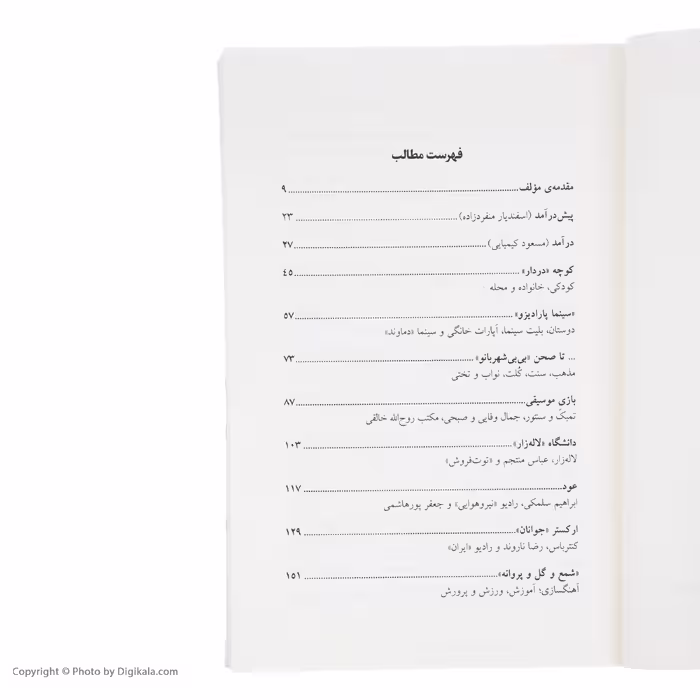 فهرست مطالب
مقدمه‌ی مؤلف ........ ۹
پیش‌درآمد (اسفندیار منفردزاده) ........ ۲۳
درآمد (مسعود کیمیایی) ........ ۲۷
کوچه «دردار» ........ ۴۵
کودکی، خانواده و محله
«سینما پارادیزو» ........ ۵۷
دوستان، بلیت سینما، آپارات خانگی و سینما «دماوند»
... تا صحن «بی‌بی‌شهربانو» ........ ۷۳
مذهب، سنت، کُلت، نواب و تختی
بازی موسیقی ........ ۸۷
تمبک و سنتور، جمال وفایی و صبحی، مکتب روح‌الله خالقی
دانشگاه «لاله‌زار» ........ ۱۰۳
لاله‌زار، عباس منتجم و «توت‌فروش»
عود ........ ۱۱۷
ابراهیم سلمکی، رادیو «نیروهوایی» و جعفر پورهاشمی
ارکستر «جوانان» ........ ۱۲۹
کنترباس، رضا ناروند و رادیو «ایران»
«شمع و گل و پروانه» ........ ۱۵۱
آهنگسازی؛ آموزش، ورزش و پرورش
Copyright © Photo by Digikala.com